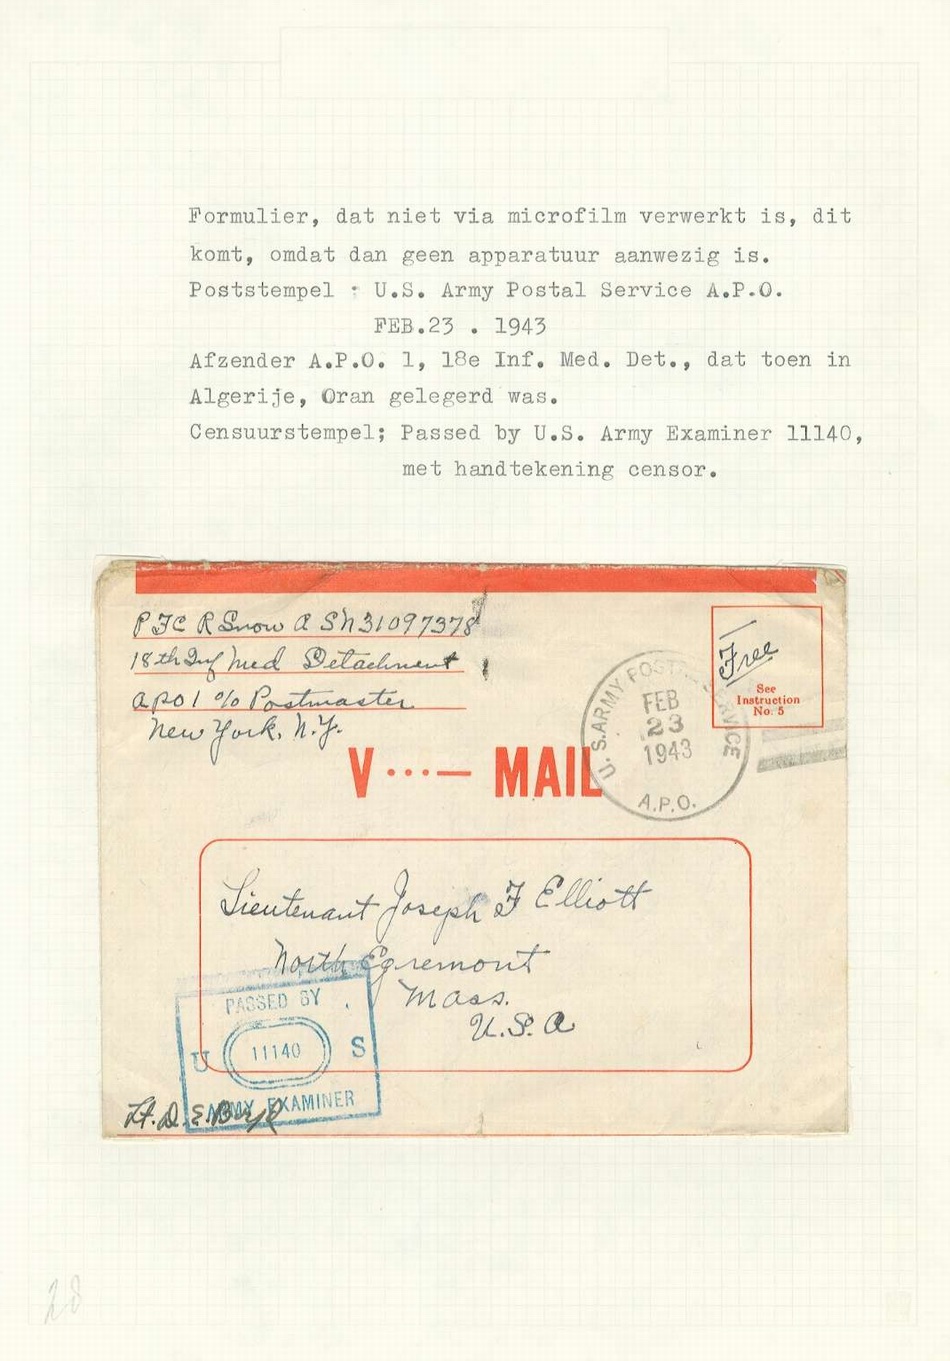 Formulier, dat niet via microfilm verwerkt is, dit
komt, omdat dan geen apparatuur aanwezig is.
Poststempel : U.S. Army Postal Service A.P.O.
FEB.23 . 1943
Afzender A.P.O. 1, 18e Inf. Med. Det., dat toen in
Algerije, Oran gelegerd was.
Censuurstempel; Passed by U.S. Army Examiner 11140,
met handtekening censor.
PFC R Snow A SN 31097378
18th Inf Med Detachment
APO 1 % Postmaster
New York, N.Y.
Free
See
Instruction
No. 5
U.S. ARMY POSTAL SERVICE
FEB
23
1943
A.P.O.
V ...— MAIL
Lieutenant Joseph F Elliott
North Egremont
Mass.
U.S.A
PASSED BY
U 11140 S
ARMY EXAMINER
Lt. D. E.
28